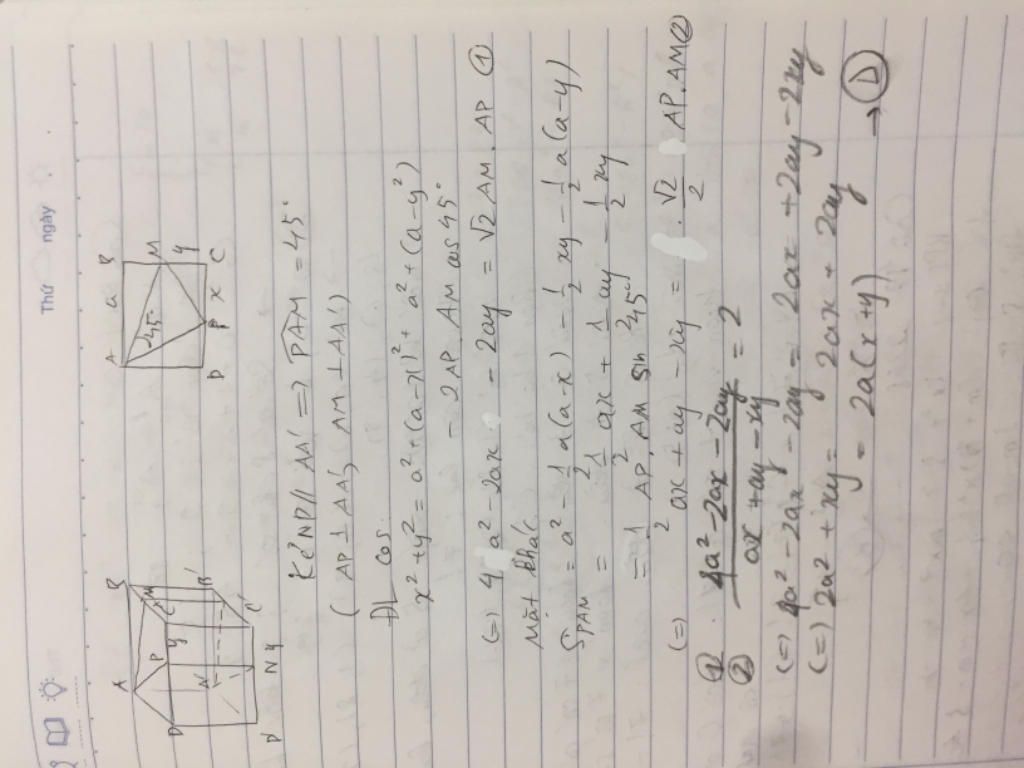 Thứ ngày
A a B
45°
M
y
D P x C
A B
M
P C B'
D y
A'
C'
D' N y
Kẻ NP // AA' => PAM = 45°
(AP ⊥ AA', AM ⊥ AA')
ĐL cos:
x² + y² = a² + (a-x)² + a² + (a-y²)
- 2 AP. AM cos 45°
(=) 4 a² - 2ax - 2ay = √2 AM. AP ①
Mặt khác
S_PAM = a² - 1/2 a(a-x) - 1/2 xy - 1/2 a(a-y)
= 1/2 ax + 1/2 ay - 1/2 xy
= 1/2 AP. AM sin 45°
(=) ax + ay - xy = . √2/2 AP. AM ②
①/② . (4a² - 2ax - 2ay)/(ax + ay - xy) = 2
(=) 4a² - 2ax - 2ay = 2ax + 2ay - 2xy
(=) 2a² + xy = 2ax + 2ay
= 2a(x+y) → Ⓓ